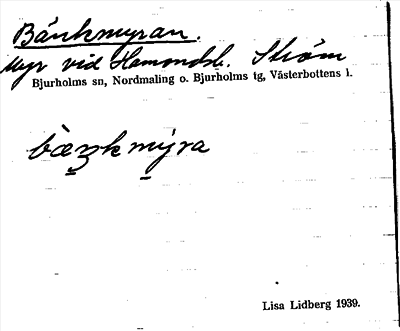 Bänkmyran.
Myr vid Hamondsb. Ström
Bjurholms sn, Nordmaling o. Bjurholms tg, Västerbottens l.
bæŋkmýra
Lisa Lidberg 1939.